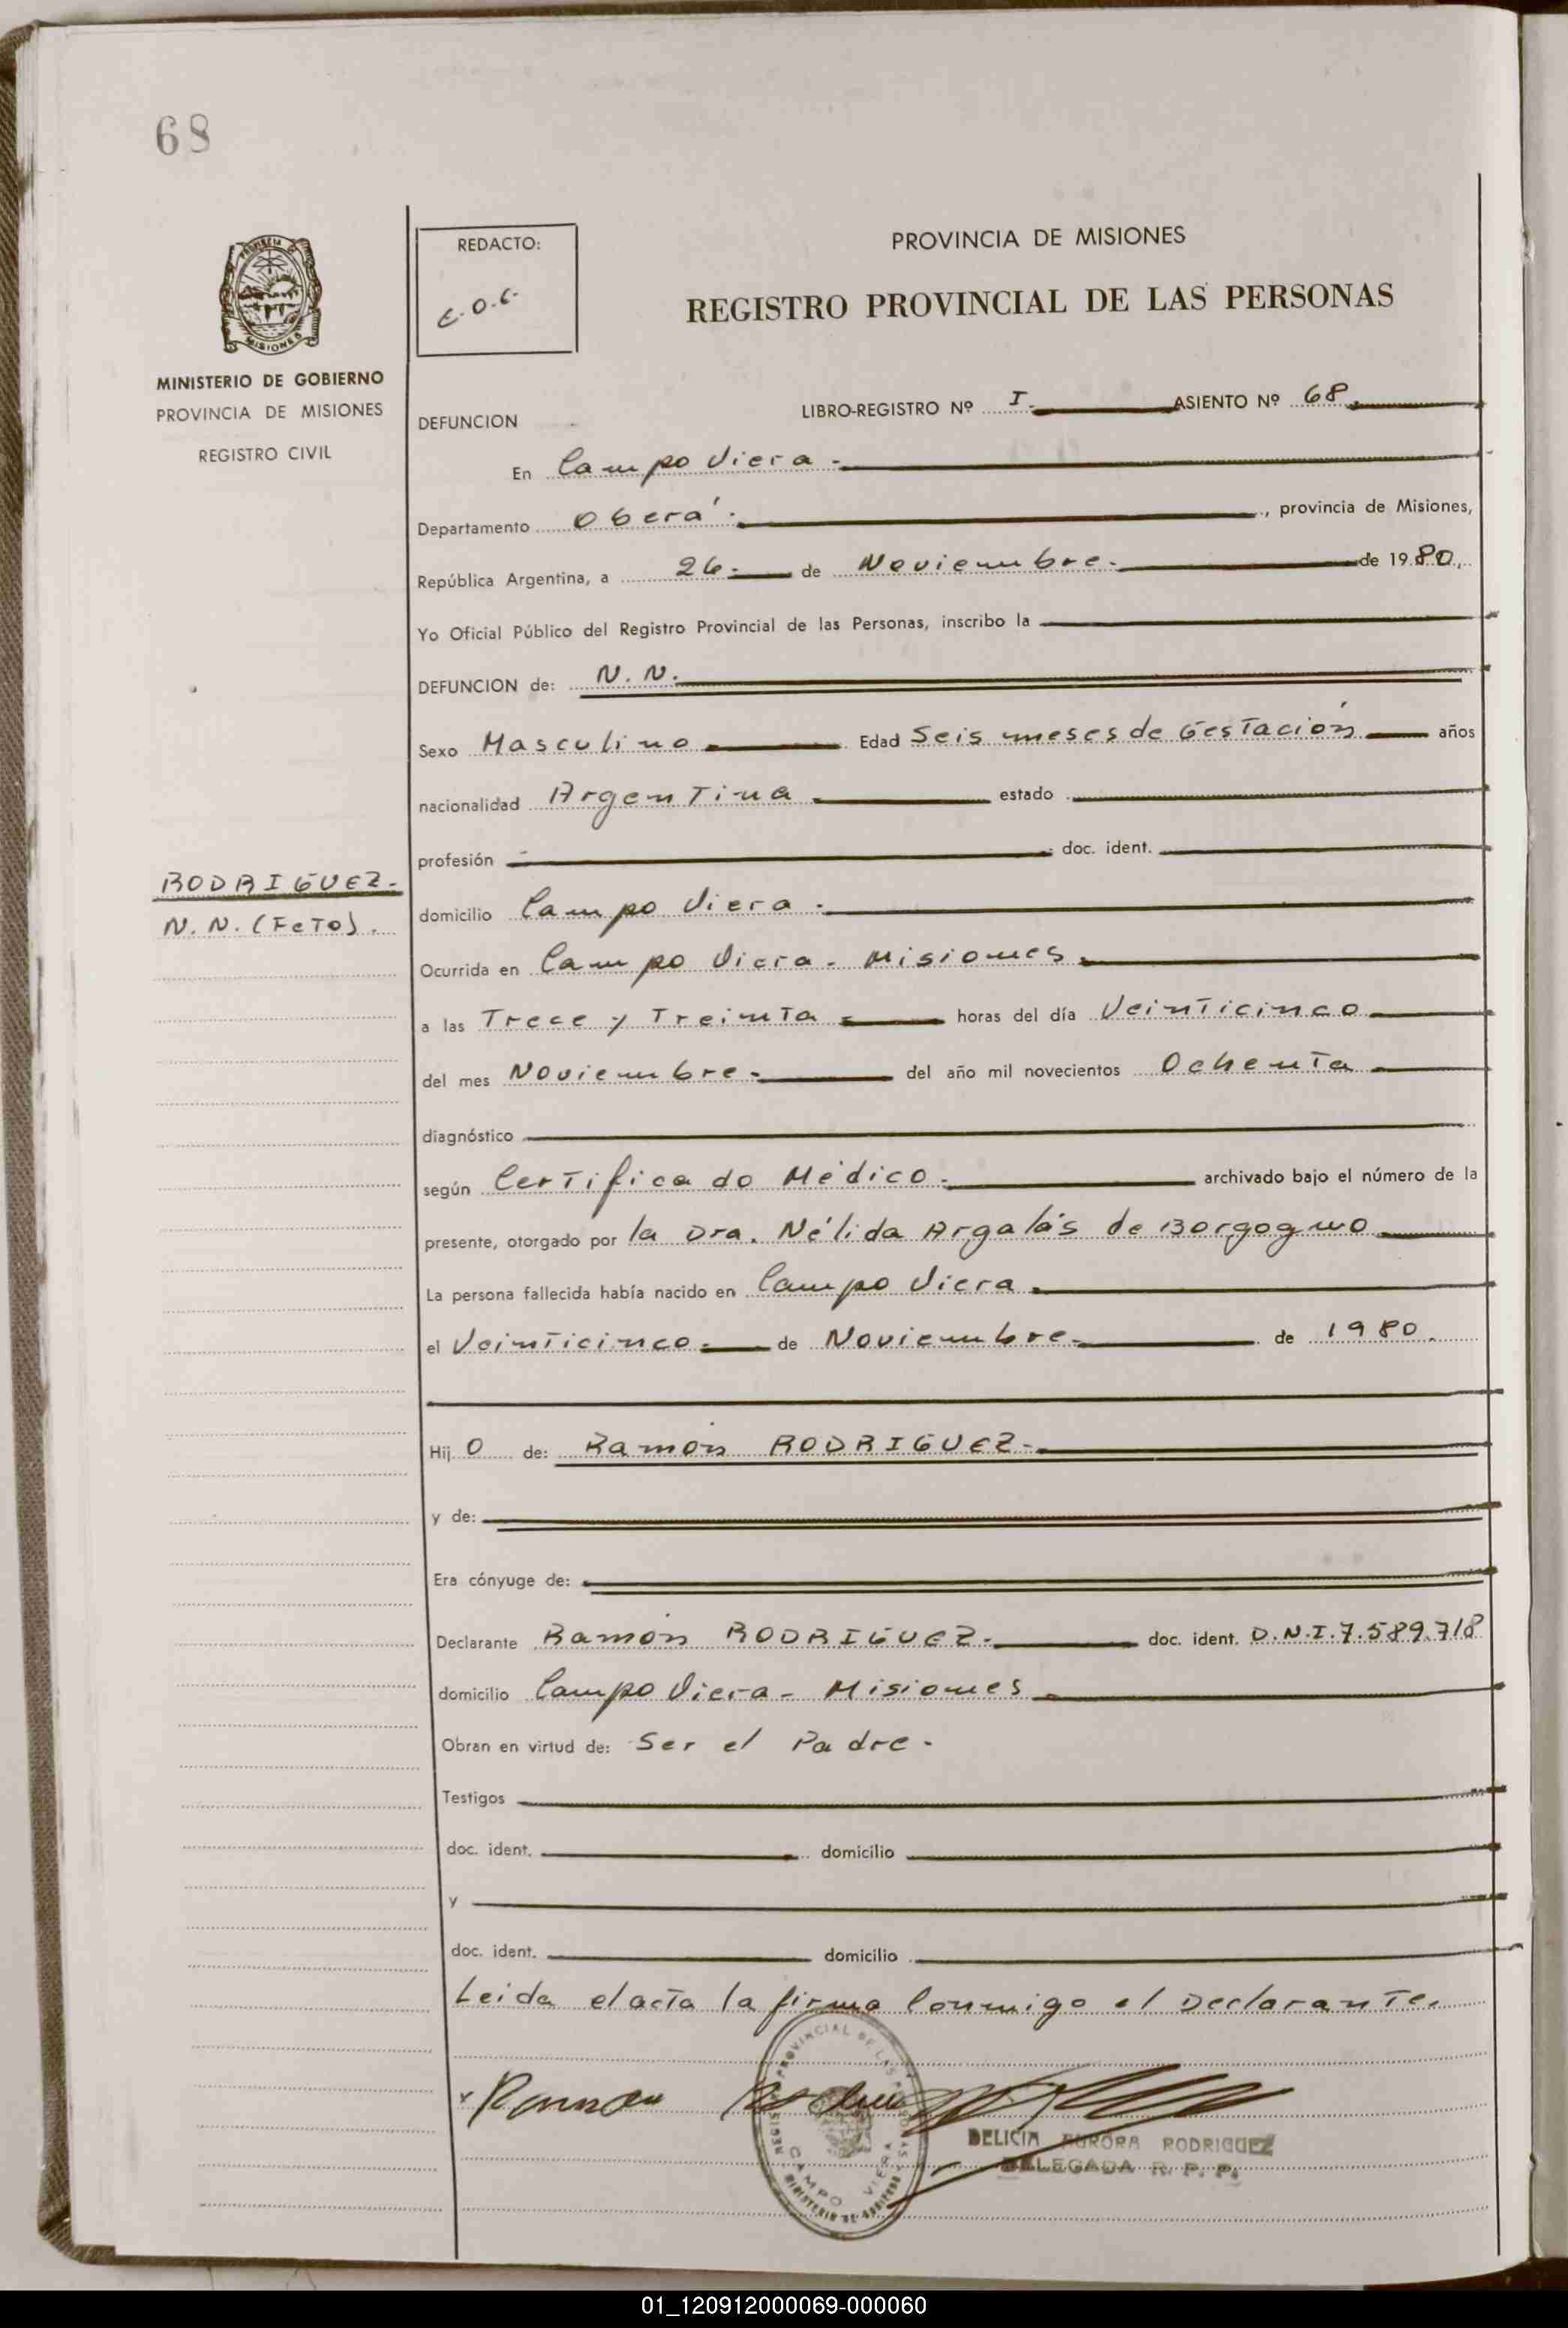 68
PROVINCIA DE MISIONES
REGISTRO PROVINCIAL DE LAS PERSONAS
REDACTO:
E.O.C.
MISIONES
MINISTERIO DE GOBIERNO
PROVINCIA DE MISIONES
REGISTRO CIVIL
RODRIGUEZ.-
N.N. (FeTo).
LIBRO-REGISTRO Nº I. ASIENTO Nº 68.
DEFUNCION
En Campo Viera.-
Departamento Oberá.- , provincia de Misiones,
República Argentina, a 26.- de Noviembre.- de 1980.
Yo Oficial Público del Registro Provincial de las Personas, inscribo la
DEFUNCION de: N. N.
Sexo Masculino Edad Seis meses de Gestación años
nacionalidad Argentina estado
profesión doc. ident.
domicilio Campo Viera.-
Ocurrida en Campo Viera - Misiones
a las Trece y Treinta horas del día Veinticinco
del mes Noviembre.- del año mil novecientos Ochenta
diagnóstico
según Certificado Médico.- archivado bajo el número de la
presente, otorgado por la Dra. Nélida Argalás de Borgogno
La persona fallecida había nacido en Campo Viera
el Veinticinco.- de Noviembre.- de 1980.
Hij o de: Ramón RODRIGUEZ.-
y de:
Era cónyuge de:
Declarante Ramón RODRIGUEZ.- doc. ident. D.N.I. 7.589.718
domicilio Campo Viera - Misiones
Obran en virtud de: Ser el Padre.-
Testigos
doc. ident. domicilio
y
doc. ident. domicilio
Leida el acta la firma Conmigo el Declarante.
Ramon
CAMPO VIERA
DELICIA AURORA RODRIGUEZ
DELEGADA R. P. P.
01_120912000069-000060